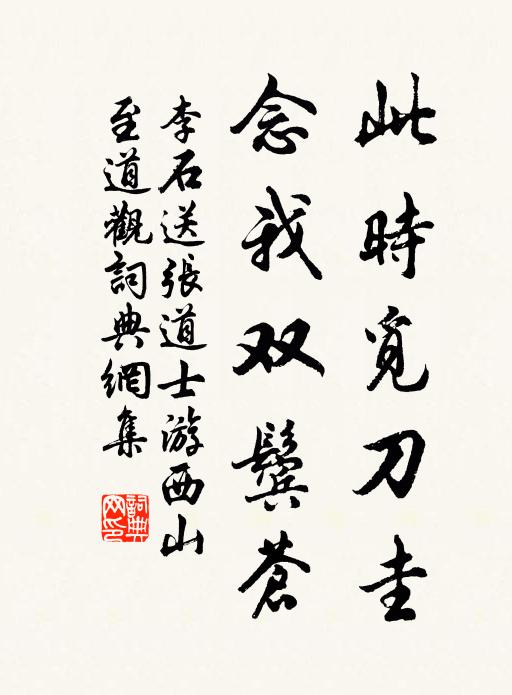 此時覓刀圭
念我双鬓蒼
李石送張道士游西山
至道觀詞典網集
詞典
网印